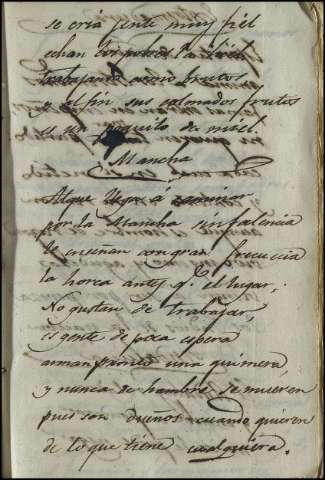 se cria gente muy fiel
echan los pobres la hiel
trabajando como brutos
y al fin sus colmados frutos
es un poquito de miel.
Mancha
Al que llega á caminar
por la Mancha sin falencia
le enseñan con gran frecuencia
la horca antes q.e el lugar,
No gustan de trabajar,
es gente de poca espera
arman pronto una quimera,
y nunca de hambre se mueren
pues son dueños cuando quieren
de lo que tiene cualquiera.